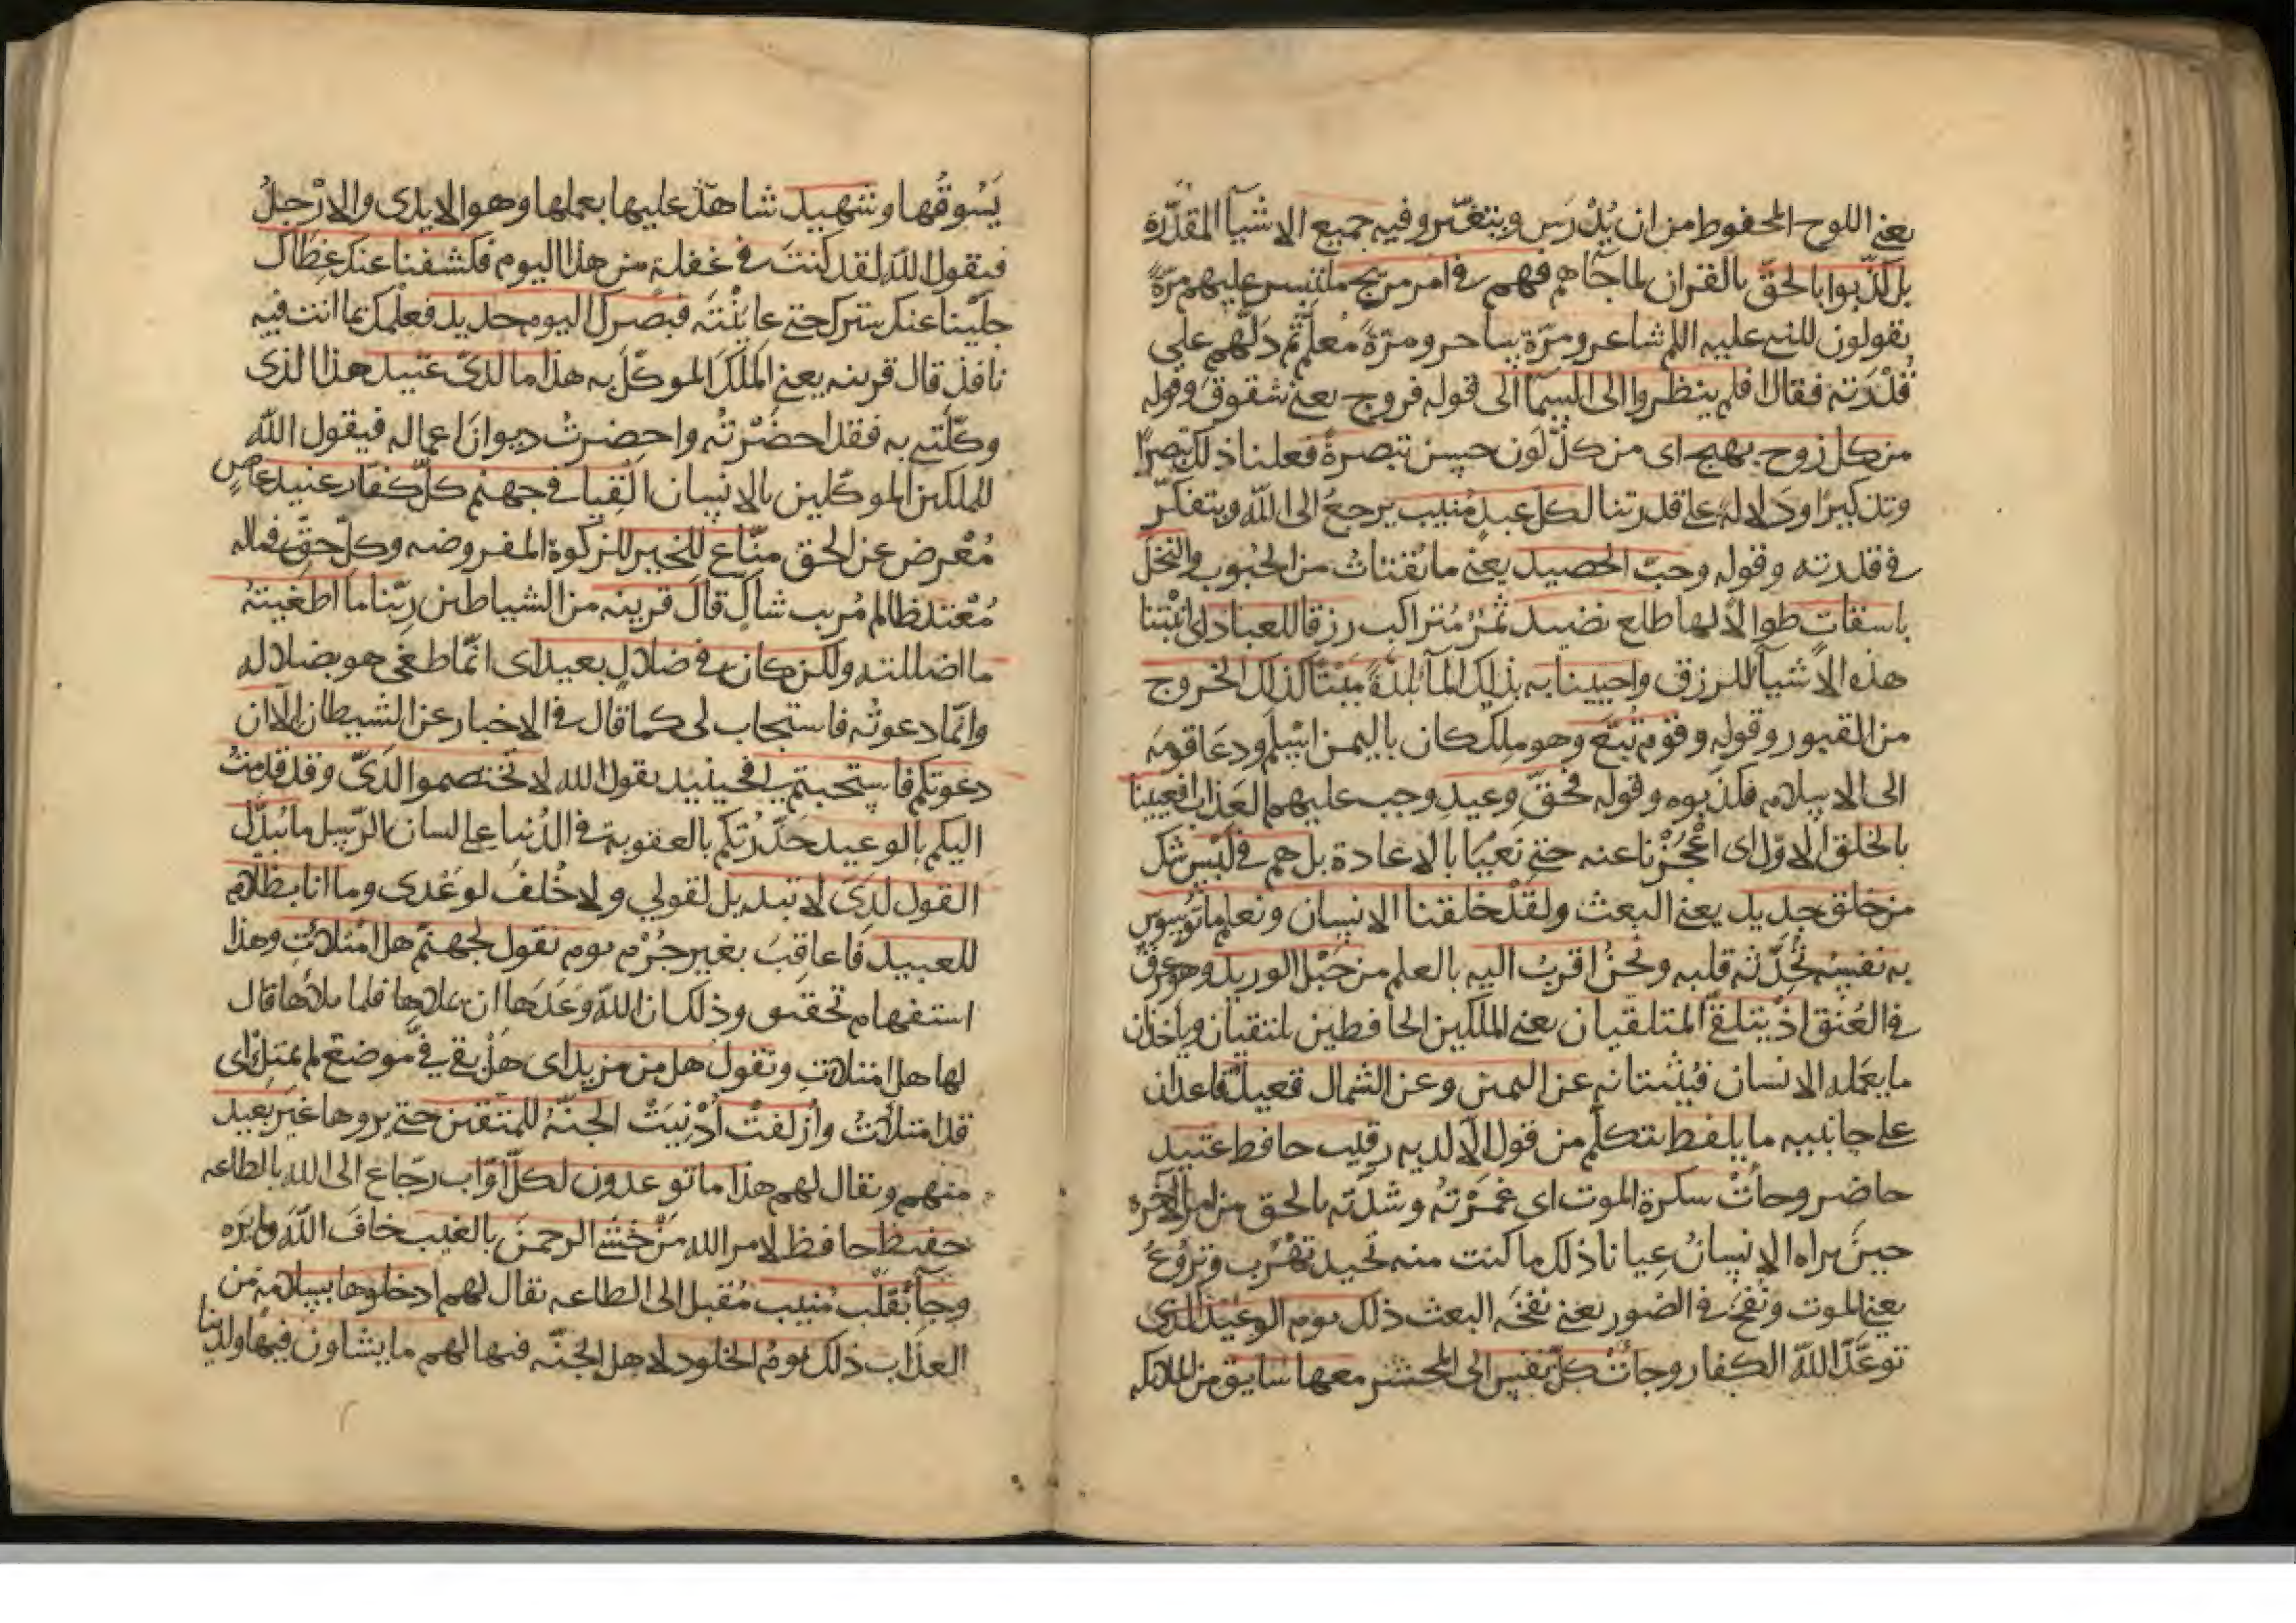 يعني اللوح المحفوظ من ان يُدْرَس ويتغيّر وفيه جميع الاشيآ المقدّرة
بل كذّبوا بالحقّ بالقران لما جاهم فهم في امر مريج ملتبس عليهم مرّةً
يقولون للنبي عليه اللم شاعر ومرّة ساحر ومرّةً مُعلم ثم دَلّهم علي
قُدْرَته فقال افلم ينظروا الى السمآ الى قوله فروج يعني شقوق وقوله
من كل زوج بهيج اى من كلّ لَون حسن تبصرةً فعلنا ذلك تبصرًا
وتذكيرًا ودَلالةً على قدرتنا لكل عبدٍ مُنيب يرجعُ الى اللّه ويتفكّر
في قدرته وقوله وحبّ الحصيد يعني ما يُقتاتُ من الحُبوب والنخل
باسقاتٍ طوالاً لها طلع نضيد ثمرٌ مُتراكب رزقا للعباد اى انبْتنا
هذه الاشيآ للرزق واحيينا به بذلك المآ بلدةً مَيْتًا كذلك الخروج
من القبور وقوله وقوم تُبّع وهو ملِك كان باليمن اسلم ودعَا قومه
الى الاسلام فكذبوه وقوله فحقّ وعيدِ وجب عليهم العَذاب افعيينا
بالخلق الاوّل اى اعْجَزْنا عنه حتى نعْيَا بالاعادة بل هم في لَبْسٍ شك
من خلق جديد يعني البعث ولقدْ خلقنا الانسان ونعلم ما تُوَسوس
به نفسه تُحَدّثه قلبه ونحنُ اقربُ اليه بالعلم من حَبْل الوريد وهو عرقٌ
في العُنق اذ يتلقّى المتلقيان يعني الملَكين الحافظين يلتقيان وياخذان
ما يعَمله الانسان فيُثبتانه عن اليمين وعن الشمال قعيدٌ قاعدان
على جانبيه ما يلفظ يتكلّم من قول الّا لديه رقيب حافظ عتيد
حاضر وجأتْ سكرة الموت اى غمَرْتُه وشدّته بالحق من امر الآخرة
حينَ يراه الانسانُ عِيانا ذلك ما كنت منه تحيد تهْرُب وتَرُوغُ
يعني الموت ونُفخَ في الصّور يعني نفخَة البعث ذلك يوم الوعيد الذى
توعّدَ اللّه الكفار وجأتْ كلّ نفس الى المحشر معها سايق من الملائكه
يَسُوقُها وشهيد شاهدٌ عليها بعملها وهو الايدى والارْجلُ
فيقول اللّه لقد كنتَ في غفلة من هذا اليوم فكشفنا عنك غِطاك
جلّينا عنك سترك حتى عايَنْتَه فبصرك اليوم حديد فعلمك بما انت فيه
نافذ قال قرينه يعني المَلَكَ الموكّلَ به هذا ما لديّ عتيد هذا الذى
وكّلتني به فقد احضَرْتُه واحضرتُ ديوانَ اعماله فيقول اللّه
للملكين الموكّلين بالانسان القيا في جهنم كلّ كفار عنيد عاصٍ
مُعْرض عن الحق منّاع للخير للزكوة المفروضه وكلّ حقّ في ماله
مُعْتد ظالم مُريب شاكٍ قال قرينه من الشياطين ربّنا ما اطغيتهُ
ما اضللته ولكن كان في ضلالٍ بعيد اى انمّا طغى هو بضلاله
وانمّا دعوتُه فاستجاب لى كما قال في الاخبار عن الشيطان الّا ان
دعوتكم فاستجبتم لي فحينيذ يقول الله لا تختصموا لديّ وقد قدمتُ
اليكم بالوعيد حَذّرْتكم بالعقوبة في الدُنيا على لسان الرسل ما يُبدّل
القول لديّ لا تبديل لقولي ولا خُلفُ لوعْدى وما انا بظلام
للعبيد فاعاقِبَ بغير جُرْم يوم نقول لجهنّم هل امتلائتِ وهذا
استفهام تحقيق وذلك ان اللّه وعَدَها ان يملاها فلما ملأها قال
لها هل امتلأتِ وتقول هل من مزيد اى هَلْ بقي فيّ موضعٌ لم يمتلئ اى
قد امتلأتُ وأزلفتْ أدْنِيَتْ الجنّةُ للمتقين حتى يروها غيرَ بعيد
منهم ويقال لهم هذا ما توعدون لكلّ اوّاب رجّاعٍ الى الله بالطاعه
حفيظ حافظ لامر الله مَنْ خشي الرحمنَ بالغيب خافَ اللّهَ ولم يَرَه
وجآ بقلْب مُنيب مُقبل الى الطاعه يقال لهم ادخلوها بسلام من
العذاب ذلك يومُ الخلود لاهل الجنّه فيها لهم ما يشاون فيها ولدينا